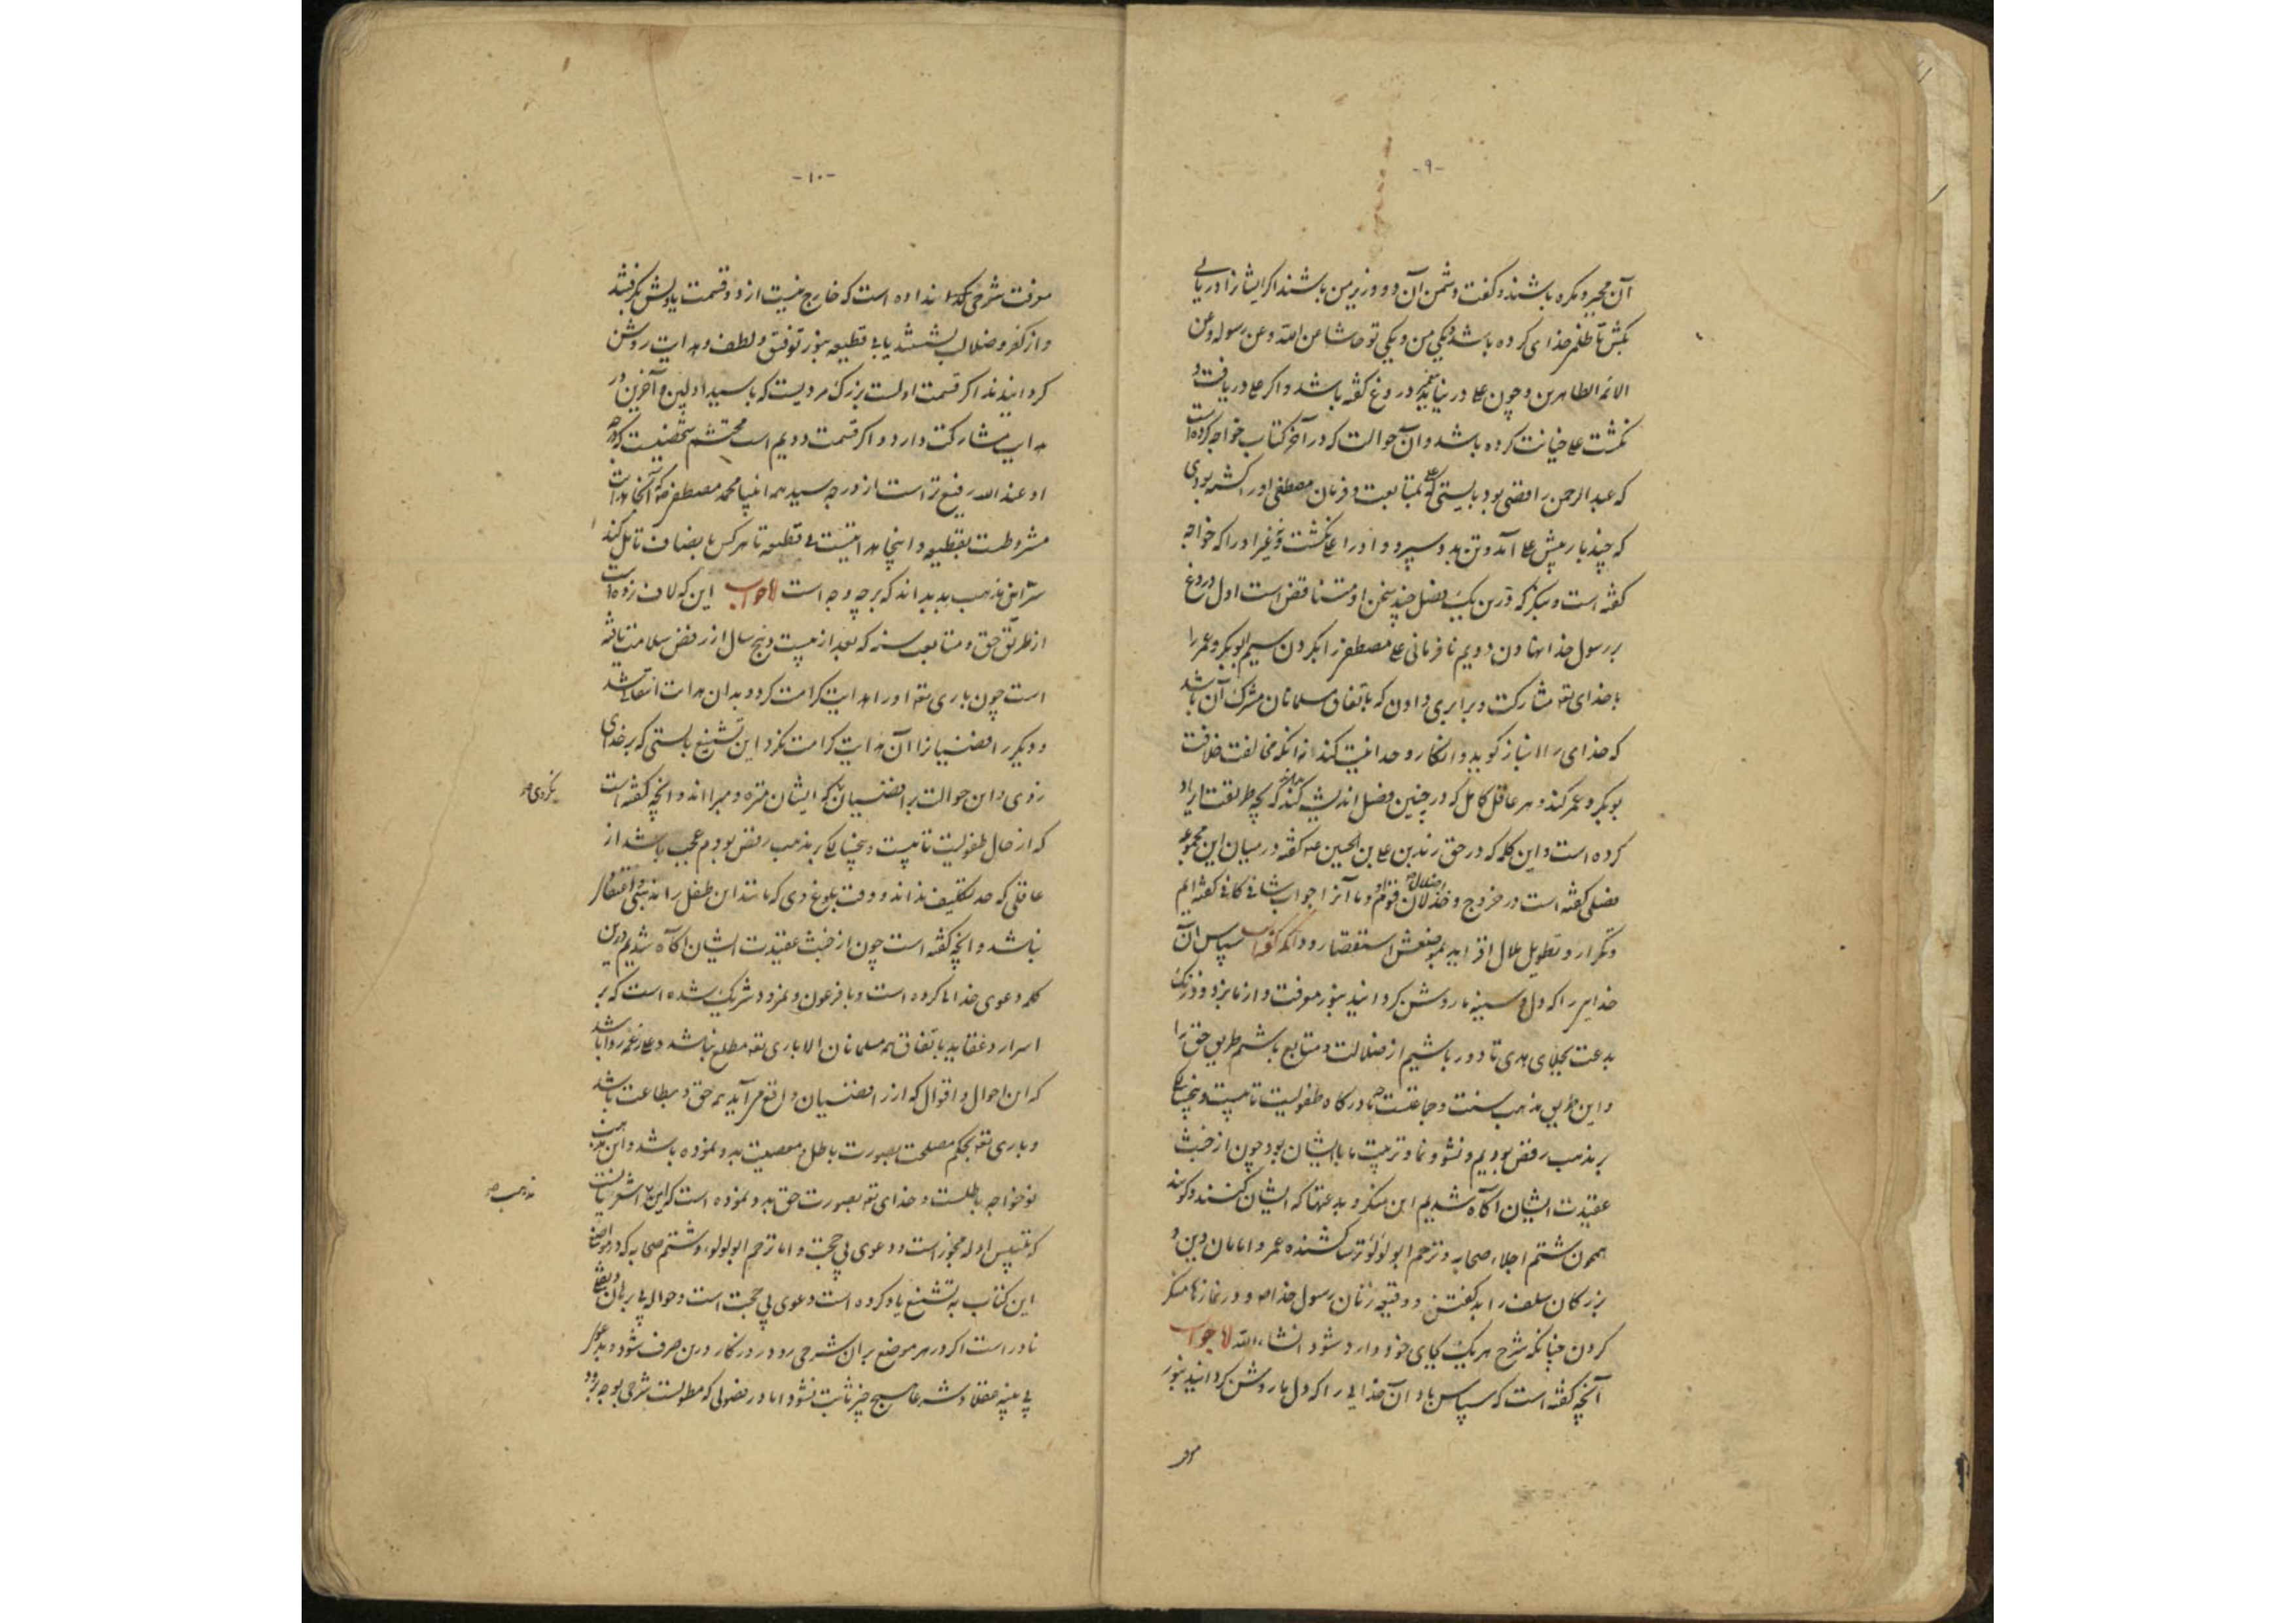 -۹-
آن مجبر و مکره باشند و گفت دشمن آن دو وزیر من باشند اگر ایشانرا دریابی
بکش تا ظلم خدای کرده باشد و یکی من و یکی تو حاشا عن الله و عن رسوله و عن
الائمه الطاهرین و چون علی در نیابد پیغمبر دروغ گفته باشد و اگر علی دریافت و
نکشت علی خیانت کرده باشد و آن حوالت که در آخر کتاب خواجه کرده است
که عبدالرحمن رافضی بود بایستی که علی بمتابعت و فرمان مصطفی او را کشته بودی
که چند بار پیش علی آمد و تن بدو سپرد و او را علی نکشت و غیر او را که خواجه
گفته است و بنگر که درین یک فصل چند سخن او متناقض است اول دروغ
بر رسول خدا نهادن دویم نافرمانی علی مصطفی را بکردن سیم ابوبکر و عمر را
با خدای تعه مشارکت و برابری دادن که باتفاق مسلمانان مشرک آن باشد
که خدای را انباز گوید و انکار وحدانیت کند نه آنکه مخالفت خلافت
بوبکر و عمر کند و هر عاقل کامل که در چنین فصل اندیشه کند بداند که بچه طریقت ایراد
کرده است و این کلمه که در حق زید بن علی بن الحسین عه گفته در میان این مجموعه
فصلی گفته است در خروج و خذلان قوم او و ما آنرا جواب شافی کافی گفته ایم
و تکرار و تطویل ملال افزاید بموضعش استقصا رود آنگه گفته است سپاس آن
خدایرا که دل و سینه ما روشن گردانید بنور معرفت و از ما بزدود زنگ
بدعت بجلای هدی تا دور باشیم از ضلالت و متابع باشیم طریق حق را
و این طریق مذهب سنت و جماعتست چه ما در گاه طفولیت تا بیست و پنج سالگی
بر مذهب رفض بودیم و نشو و نما و تربیت ما با ایشان بود چون از خبث
عقیدت ایشان آگاه شدیم این منکر و بدعتها که ایشان کنند و گویند
همچون شتم اجلاء صحابه و ترحم ابو لؤلؤ ترسا کشنده عمر و امامان دین و
بزرگان سلف را بد گفتن و وقیعه زنان رسول خدا ص و در نمازها منکر
کردن چنانکه شرح هر یک بجای خود وارد شود انشاءالله اما جواب
آنچه گفته است که سپاس باد آن خدایی را که دل ما روشن گردانید بنور
معرفـ
-۱۰-
معرفت شرحی نداده است که خارج نیست از دو قسمت یا دلش بگرفتند
و از کفر و ضلالت بشستند یا بی قطیعه بنور توفیق و لطف و هدایت روشن
گردانیدند اگر قسمت اولست بزرگ مردیست که با سید اولین و آخرین در
هدایت مشارکت دارد و اگر قسمت دویم است محتشم شخصیست که درجه
او عند الله رفیع تر است از درجه سید همه انبیا محمد مصطفی ص که آنجا هدایت
مشروطست بقطیعه و اینجا هدایتیست بی قطیعه تا هر کس بانصاف تامل کند
سر این مذهب بد بداند که بر چه وجه است اما جواب این که لاف زده است
از طریق حق و متابعت سنه که بعد از بیست و پنج سال از رفض سلامت یافته
است چون باری تعه او را هدایت کرامت کرد و بدان هدایت انتقالی باشد
و دیگر رافضیانرا آن هدایت کرامت نکرد این تشنیع بایستی که بر خدای
زدی و این حوالت برافضیان که ایشان منزه و مبرااند و آنچه گفته است
نکردی
که از حال طفولیت تا بیست و پنجسالگی بر مذهب رفض بودم عجب باشد از
عاقلی که حد تکلیف نداند و وقت بلوغ وی که مانند این طفل را مذهبی و اعتقاد
نباشد و آنچه گفته است چون از خبث عقیدت ایشان آگاه شدیم درین
کلمه دعوی خدایی کرده است و با فرعون و نمرود شریک شده است که بر
اسرار و عقاید باتفاق همه مسلمانان الا باری تعه مطلع نباشد و علی زعمه روا باشد
که این احوال و اقوال که از رافضیان واقع آید همه حق و طاعت باشد
و باری تعه بحکم مصلحت بصورت باطل و معصیت بدو نموده باشد و این مذهب
نو خواجه باطلست و خدای تعه بصورت حق بدو نموده است که این اشعریانست
مذهب
که تلبیس ادله مجوز است و دعوی بی حجت و اما ترحم ابولؤلؤ و شتم صحابه که در مواضع
این کتاب به تشنیع یاد کرده است دعوی بی حجت است و حواله بی برهان و بغایت
نادر است اگر در هر موضع بر آن شرحی رود روزگار درین صرف شود و بدعوی
بی بینه عقلا و شرعا هیچ چیز ثابت نشود اما در فصولی که مطولست شرحی بوجه برود